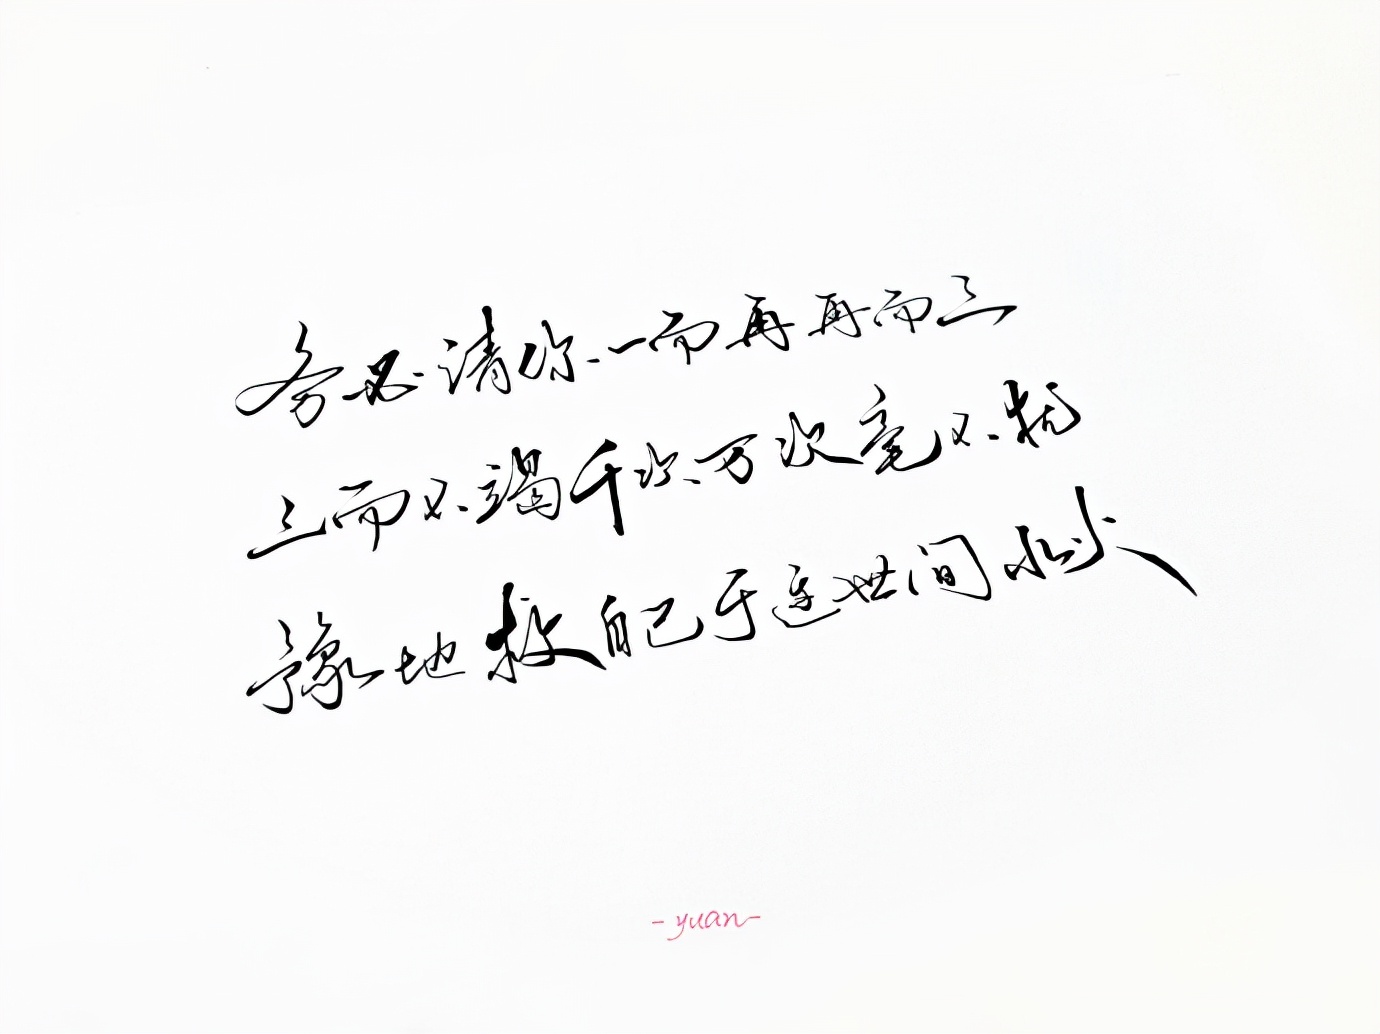 务必请你一而再再而三
三而不竭千次万次毫不犹
豫地救自己于这世间水火
-yuan-